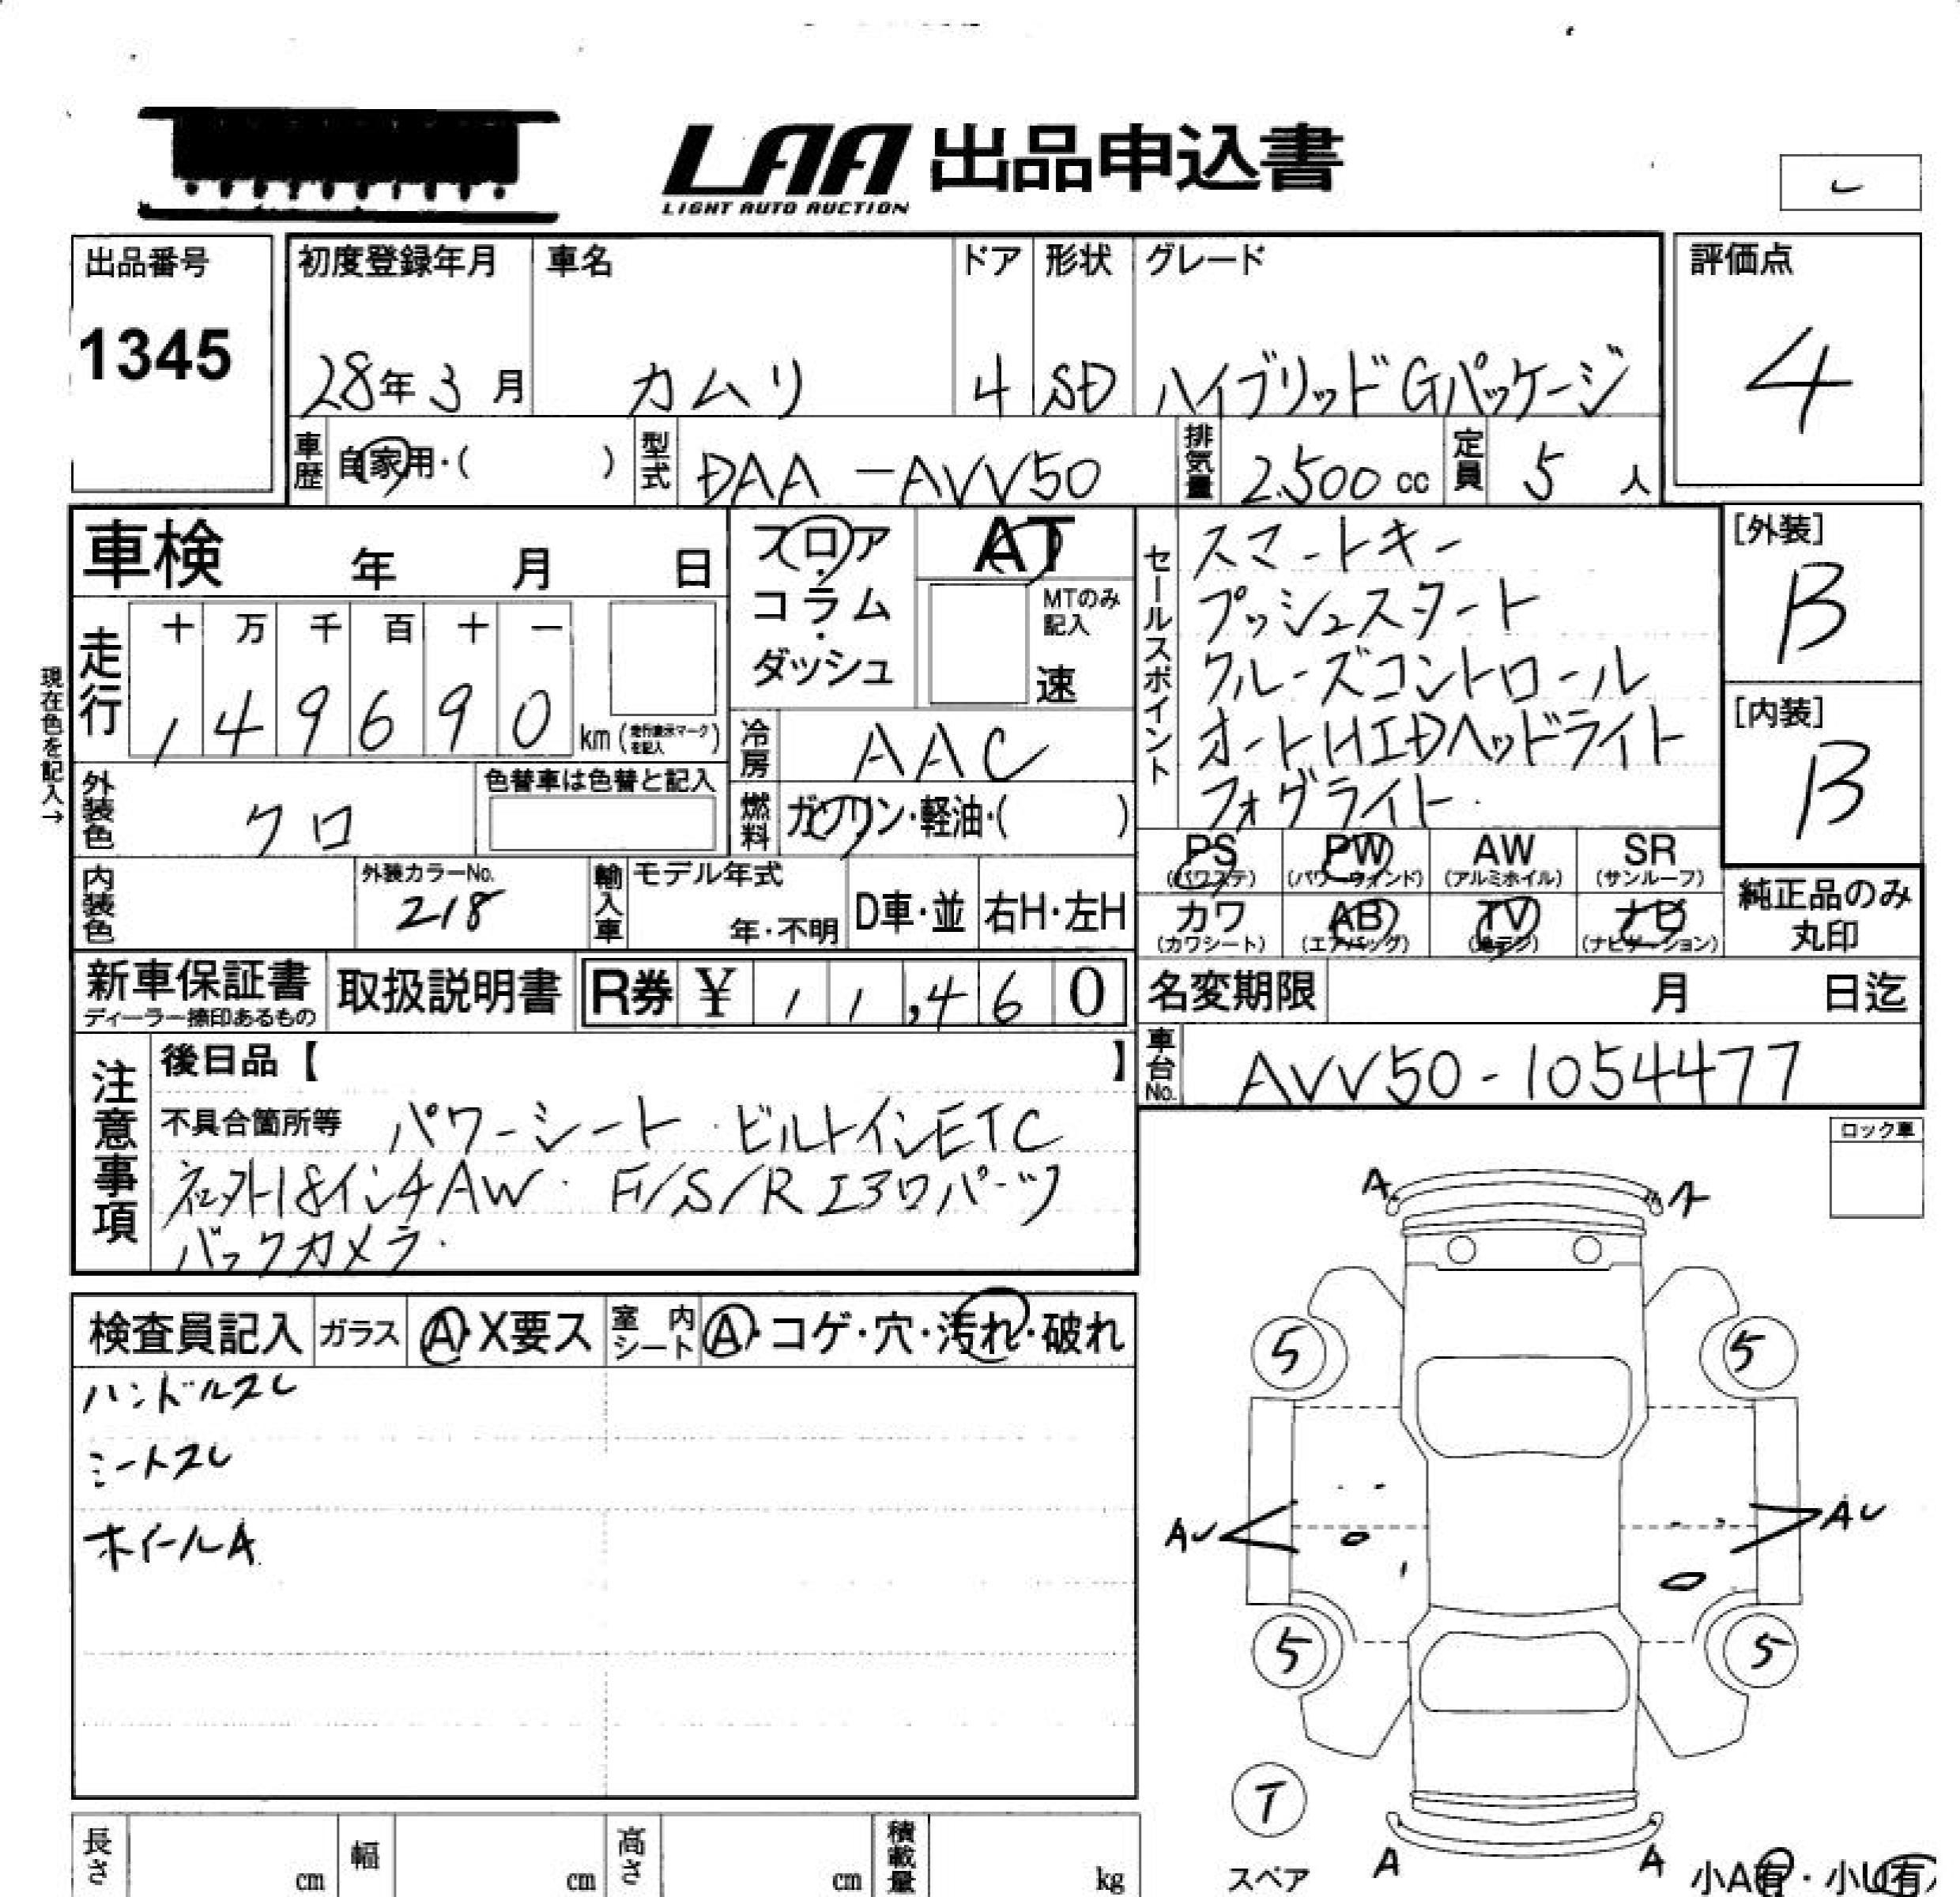 LAA 出品申込書
LIGHT AUTO AUCTION
出品番号
1345
初度登録年月 車名 ドア 形状 グレード
28年3月 カムリ 4 SD ハイブリッドGパッケージ
評価点
4
車歴 自家用・( ) 型式 DAA-AVV50 排気量 2.500cc 定員 5人
車検 年 月 日
フロア・コラム・ダッシュ
AT
MTのみ記入
速
セールスポイント
スマートキー
プッシュスタート
クルーズコントロール
オートHIDヘッドライト
フォグライト
[外装]
B
[内装]
B
現在色を記入→
走行 十 万 千 百 十 一
149690 km(走行表示マークを記入)
冷房 AAC
外装色 クロ 色替車は色替と記入
燃料 ガソリン・軽油・( )
PS PW AW SR
(パワステ) (パワーウィンド) (アルミホイル) (サンルーフ)
カワ AB TV ナビ
(カワシート) (エアバッグ) (地デジ) (ナビゲーション)
純正品のみ
丸印
内装色 外装カラーNo. 218 輸入車 モデル年式 年・不明 D車・並 右H・左H
新車保証書
ディーラー捺印あるもの
取扱説明書 R券 ¥ 11,460
名変期限 月 日迄
車台No. AVV50-1054477
注意事項
後日品【 】
不具合箇所等 パワーシート・ビルトインETC
社外18インチAW・F/S/Rエアロパーツ
バックカメラ・
ロック車
検査員記入 ガラス A・X要ス 室内シート A・コゲ・穴・汚れ・破れ
ハンドルスレ
シートスレ
ホイールA
A A
5 5
AU AU
5 5
T
スペア
A A
小A有・小U有
長さ cm 幅 cm 高さ cm 積載量 kg